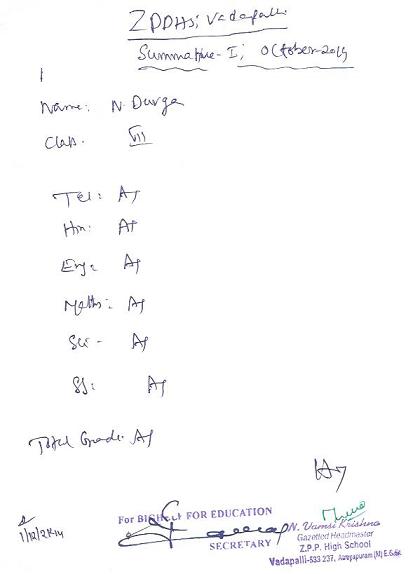 ZPPHS, Vadapalli
Summative-I, October-2014
Name: N. Durga
Class. VII
Tel: A1
Hin: A1
Eng: A1
Maths: A1
Sci - A1
SS: A1
Total Grade: A1
1/12/2014
For BIGHELP FOR EDUCATION
SECRETARY
N. Vamsi Krishna
Gazetted Headmaster
Z.P.P. High School
Vadapalli-533 237, (M) E.G.dt